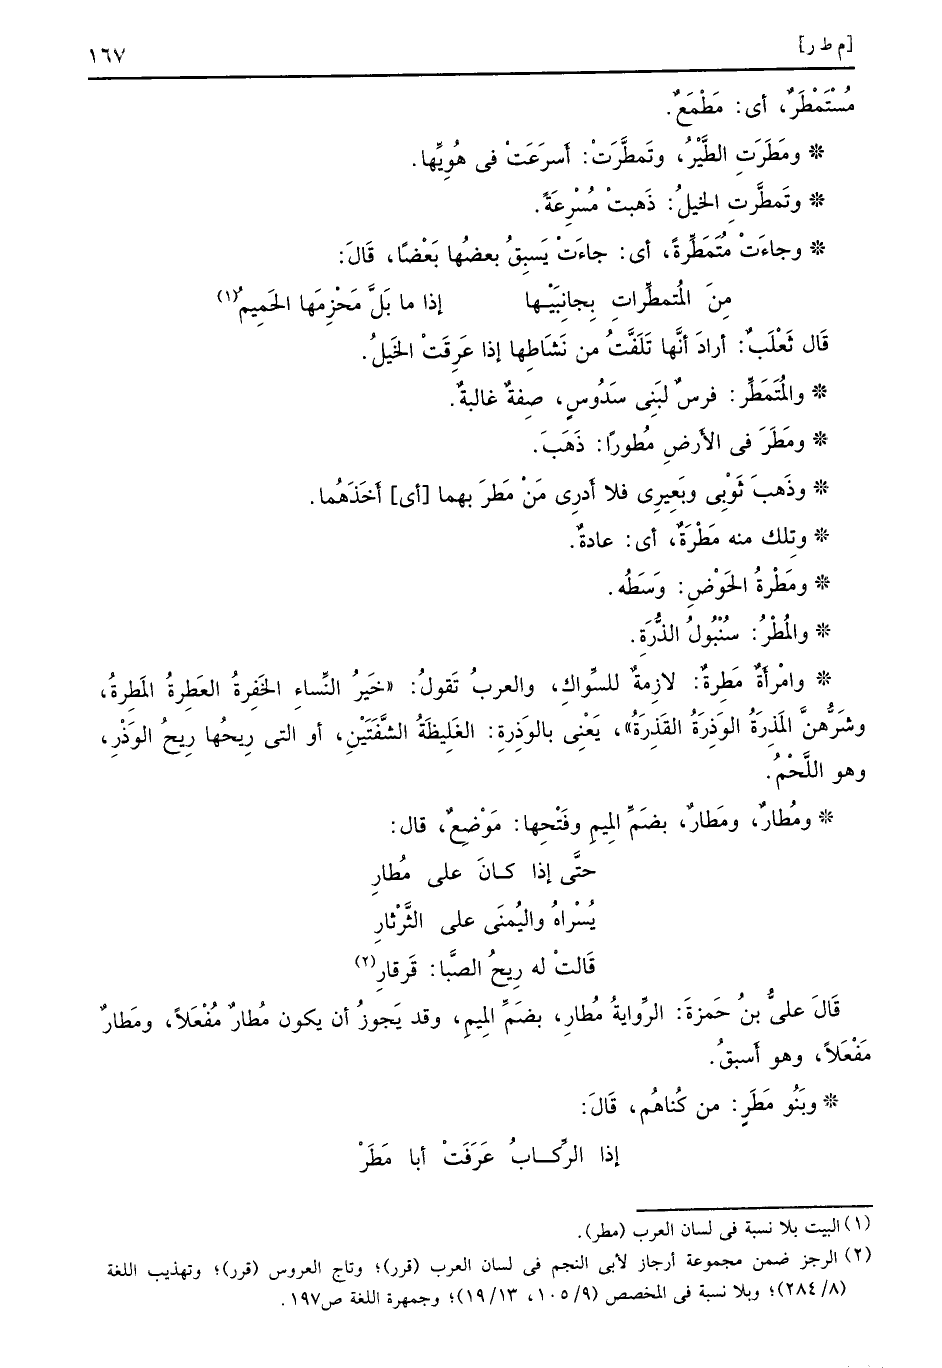 [م ط ر]
١٦٧
مُسْتَمْطَرٌ، أى: مَطْمَعٌ.
* ومَطَرَتِ الطَّيْرُ، وتَمطَّرَتْ: أَسرَعَتْ فى هُوِيِّها.
* وتَمطَّرتِ الخيلُ: ذَهبتْ مُسْرِعَةً.
* وجاءَتْ مُتَمَطِّرةً، أى: جاءَتْ يَسبِقُ بعضُها بَعْضًا، قَالَ:
مِنَ المُتمطِّراتِ بِجانِبَيْـها إذا ما بَلَّ مَحْزِمَها الحَمِيمُ(١)
قَال ثَعْلَبٌ: أرادَ أنَّها تَلَفَّتُ من نَشَاطِها إذا عَرِقَتْ الخَيلُ.
* والمُتَمَطِّر: فرسٌ لبَنِى سَدُوسٍ، صِفةٌ غالبةٌ.
* ومَطَرَ فى الأَرضِ مُطورًا: ذَهَبَ.
* وذَهبَ ثَوْبِى وبَعِيرِى فلا أَدرِى مَنْ مَطَرَ بهما [أى] أَخَذَهُما.
* وتِلك منه مَطْرَةٌ، أى: عادةٌ.
* ومَطْرةُ الحَوْضِ: وَسَطُه.
* والمُطْرُ: سُنْبُولُ الذُّرَةِ.
* وامْرأَةٌ مَطِرةٌ: لازمةٌ للسِّواكِ، والعربُ تَقولُ: «خَيَرُ النِّساءِ الخَفِرةُ العَطِرةُ المَطِرةُ،
وشَرُّهنَّ المَذِرَةُ الوَذِرَةُ القَذِرَةُ»، يَعْنِى بالوَذِرةِ: الغَلِيظَةُ الشَّفَتَيْنِ، أو التى رِيحُها رِيحُ الوَذْرِ،
وهو اللَّحْمُ.
* ومُطارٌ، ومَطارٌ، بضَمِّ المِيمِ وفَتْحِها: مَوْضِعٌ، قال:
حتَّى إذا كـانَ على مُطارِ
يُسْراهُ واليُمنَى على الثَّرْثارِ
قَالتْ له رِيحُ الصَّبا: قَرقارِ(٢)
قَالَ علىُّ بنُ حَمزةَ: الرِّوايةُ مُطارِ، بضَمِّ المِيمِ، وقد يَجوزُ أن يكون مُطارٌ مُفْعَلاً، ومَطارٌ
مَفْعَلاً، وهو أَسبقُ.
* وبَنُو مَطَرٍ: من كُناهُم، قَالَ:
إذا الرِّكـابُ عَرَفَتْ أبا مَطَرْ
(١) البيت بلا نسبة فى لسان العرب (مطر).
(٢) الرجز ضمن مجموعة أرجاز لأبى النجم فى لسان العرب (قرر)؛ وتاج العروس (قرر)؛ وتهذيب اللغة
(٨/ ٢٨٤)؛ وبلا نسبة فى المخصص (٩/ ١٠٥، ١٣/ ١٩)؛ وجمهرة اللغة ص١٩٧.